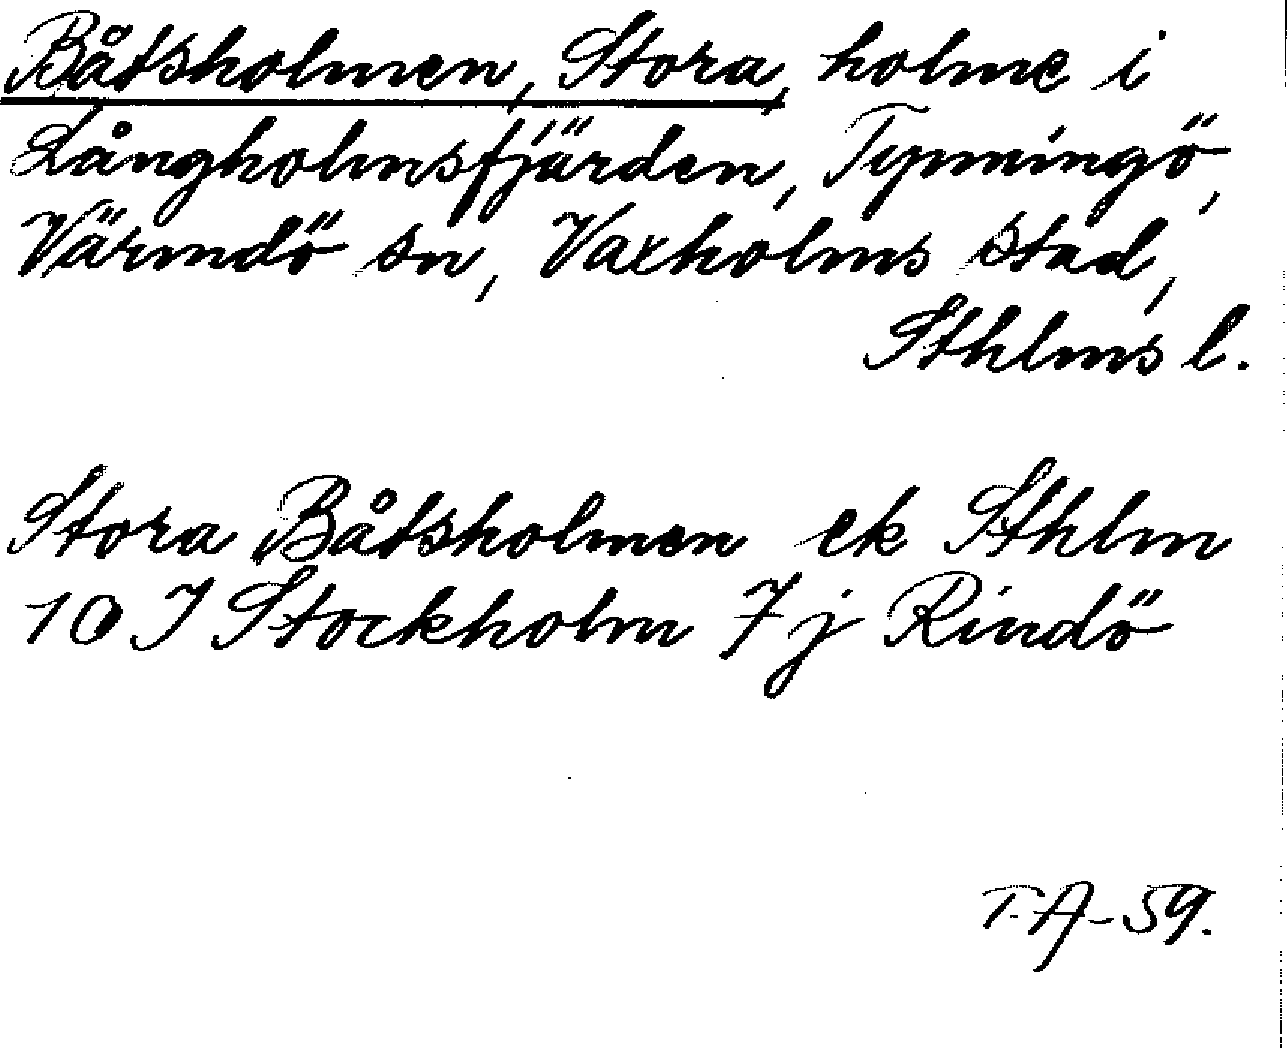 Båtsholmen, Stora, holme i
Långholmsfjärden, Tynningö,
Värmdö sn, Vaxholms stad,
Sthlms l.
Stora Båtsholmen ek Sthlm
10 I Stockholm 7 j Rindö
T.A-59.